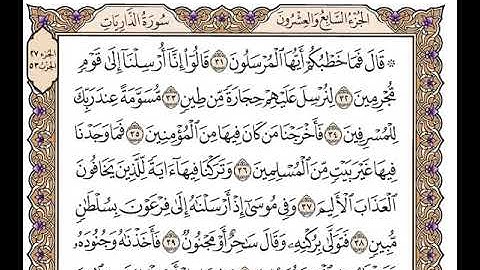 الجزء السابع والعشرون
سورة الذاريات
الجزء ٢٧
الحزب ٥٣
۞ قَالَ فَمَا خَطْبُكُمْ أَيُّهَا ٱلْمُرْسَلُونَ ٣١ قَالُوٓاْ إِنَّآ أُرْسِلْنَآ إِلَىٰ قَوْمٍ
مُّجْرِمِينَ ٣٢ لِنُرْسِلَ عَلَيْهِمْ حِجَارَةً مِّن طِينٍ ٣٣ مُّسَوَّمَةً عِندَ رَبِّكَ
لِلْمُسْرِفِينَ ٣٤ فَأَخْرَجْنَا مَن كَانَ فِيهَا مِنَ ٱلْمُؤْمِنِينَ ٣٥ فَمَا وَجَدْنَا
فِيهَا غَيْرَ بَيْتٍ مِّنَ ٱلْمُسْلِمِينَ ٣٦ وَتَرَكْنَا فِيهَآ ءَايَةً لِّلَّذِينَ يَخَافُونَ
ٱلْعَذَابَ ٱلْأَلِيمَ ٣٧ وَفِى مُوسَىٰٓ إِذْ أَرْسَلْنَٰهُ إِلَىٰ فِرْعَوْنَ بِسُلْطَٰنٍ
مُّبِينٍ ٣٨ فَتَوَلَّىٰ بِرُكْنِهِۦ وَقَالَ سَٰحِرٌ أَوْ مَجْنُونٌ ٣٩ فَأَخَذْنَٰهُ وَجُنُودَهُۥ